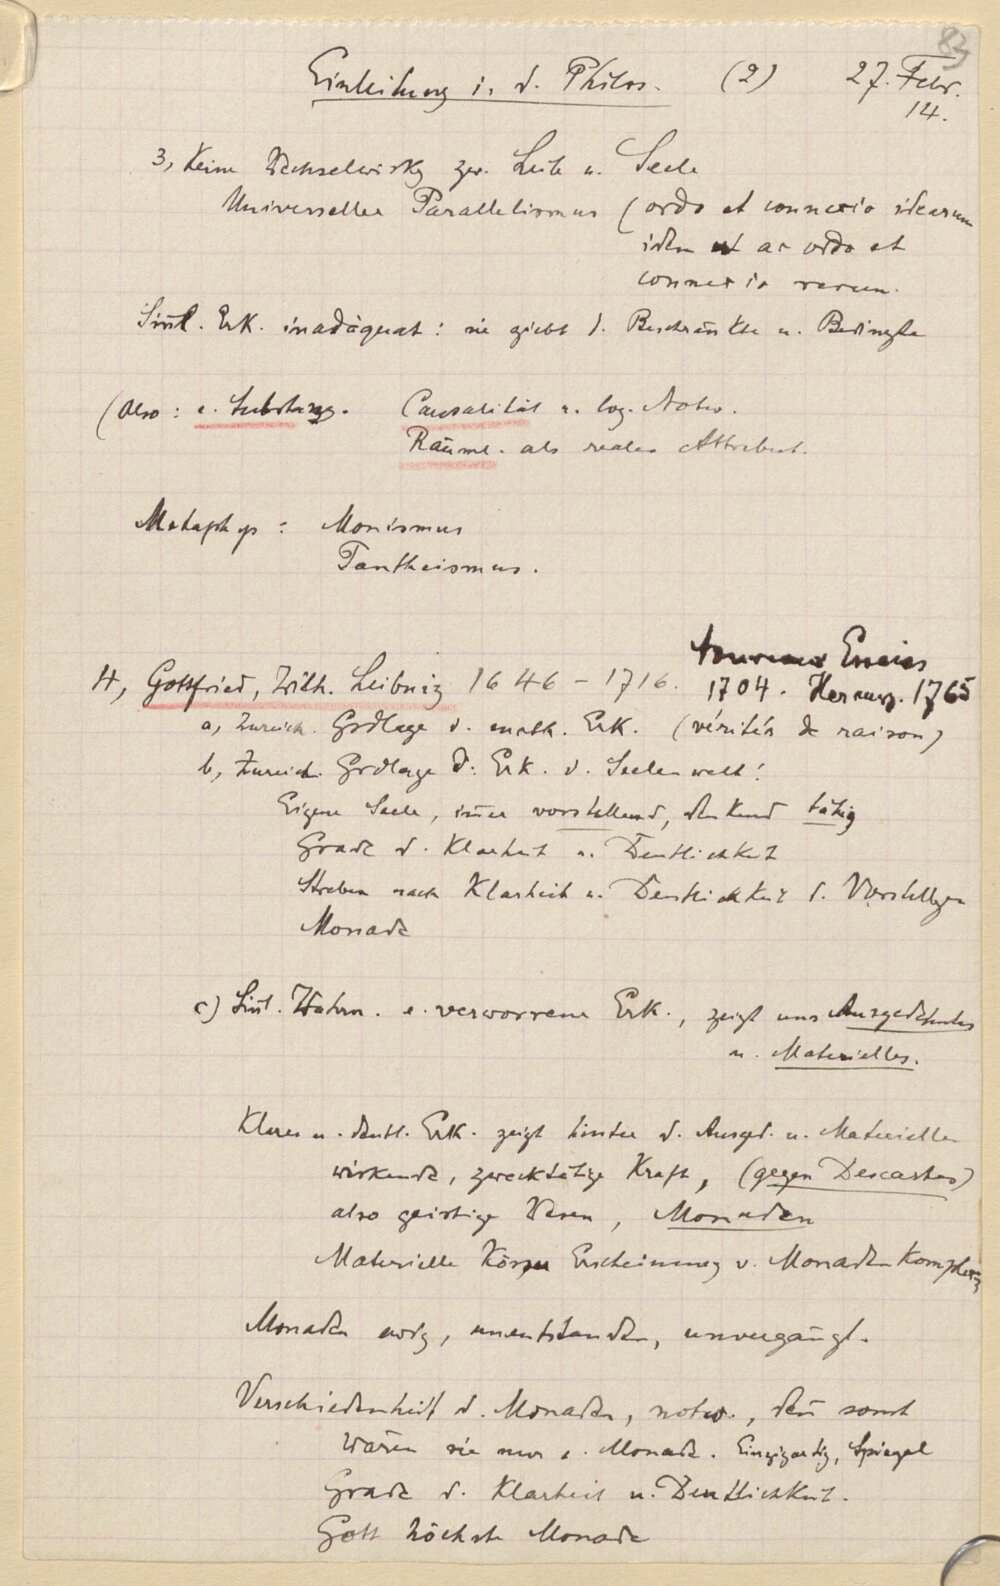 83
Einleitung i. d. Philos. (2) 27. Febr.
14.
3, Keine Wechselwirkg zw. Leib u. Seele
Universeller Parallelismus (ordo et connexio idearum
idem est ac ordo et
connexio rerum.
Sinnl. Erk. inadäquat: sie giebt d. Beschränkte u. Bedingte
(Also: e. Substanz. Causalität u. log. Notw.
Räuml. als reales Attribut.
Metaphys: Monismus
Pantheismus.
4, Gottfried, Wilh. Leibniz 1646 – 1716. Nouveaux Essais
1704. Herausg. 1765
a, Zureich. Grdlage d. math. Erk. (vérités de raison)
b, Zureich. Grdlage d. Erk. d. Seelenwelt!
Eigene Seele, immer vorstellend, denkend tätig
Grade d. Klarheit u. Deutlichkeit
Streben nach Klarheit u. Deutlichkeit d. Vorstellgen
Monade
c) Sinnl. Wahrn. e. verworrene Erk., zeigt uns Ausgedehntes
u. Materielles.
Klare u. deutl. Erk. zeigt hinter d. Ausged. u. Materiellen
wirkende, zwecktätige Kraft, (gegen Descartes)
also geistige Wesen, Monaden
Materielle Körper Erscheinung v. Monadenkomplexen
Monaden ewig, unentstanden, unvergängl.
Verschiedenheit d. Monaden, notw., denn sonst
wären sie nur e. Monade. Einzigartig, Spiegel
Grade d. Klarheit u. Deutlichkeit.
Gott höchste Monade